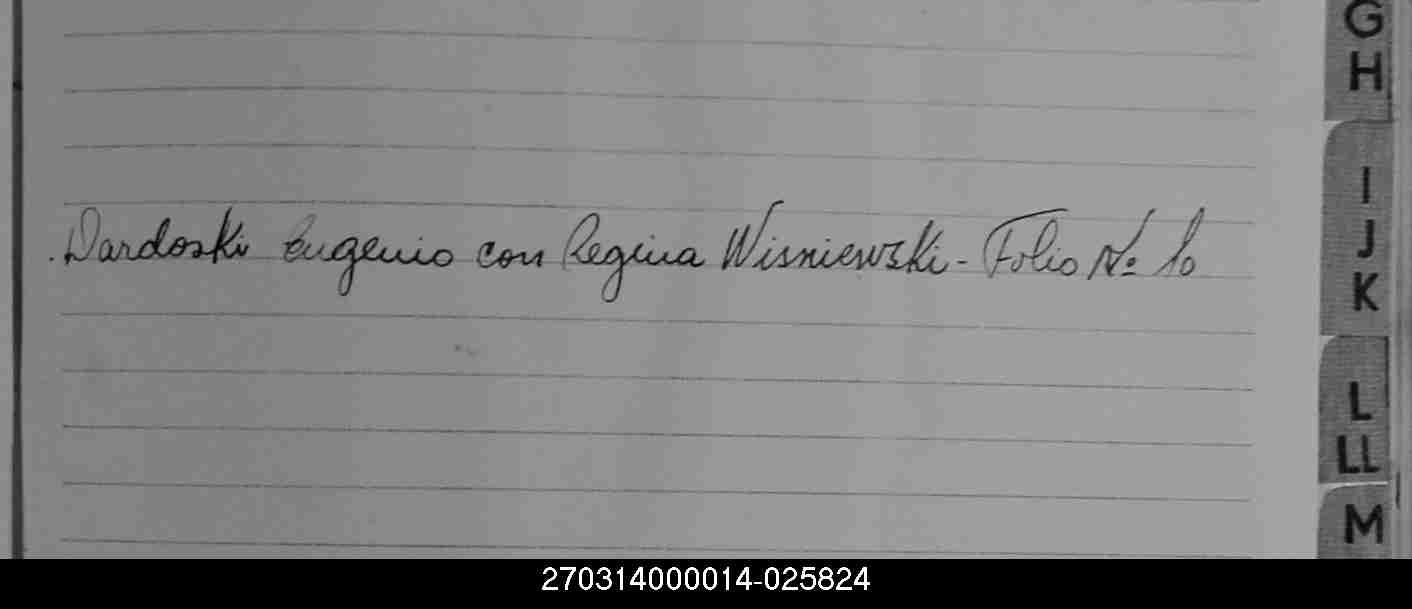 G
H
I
J
K
Dardoski Eugenio con Regina Wisniewski - Folio Nº 10
L
LL
M
270314000014-025824